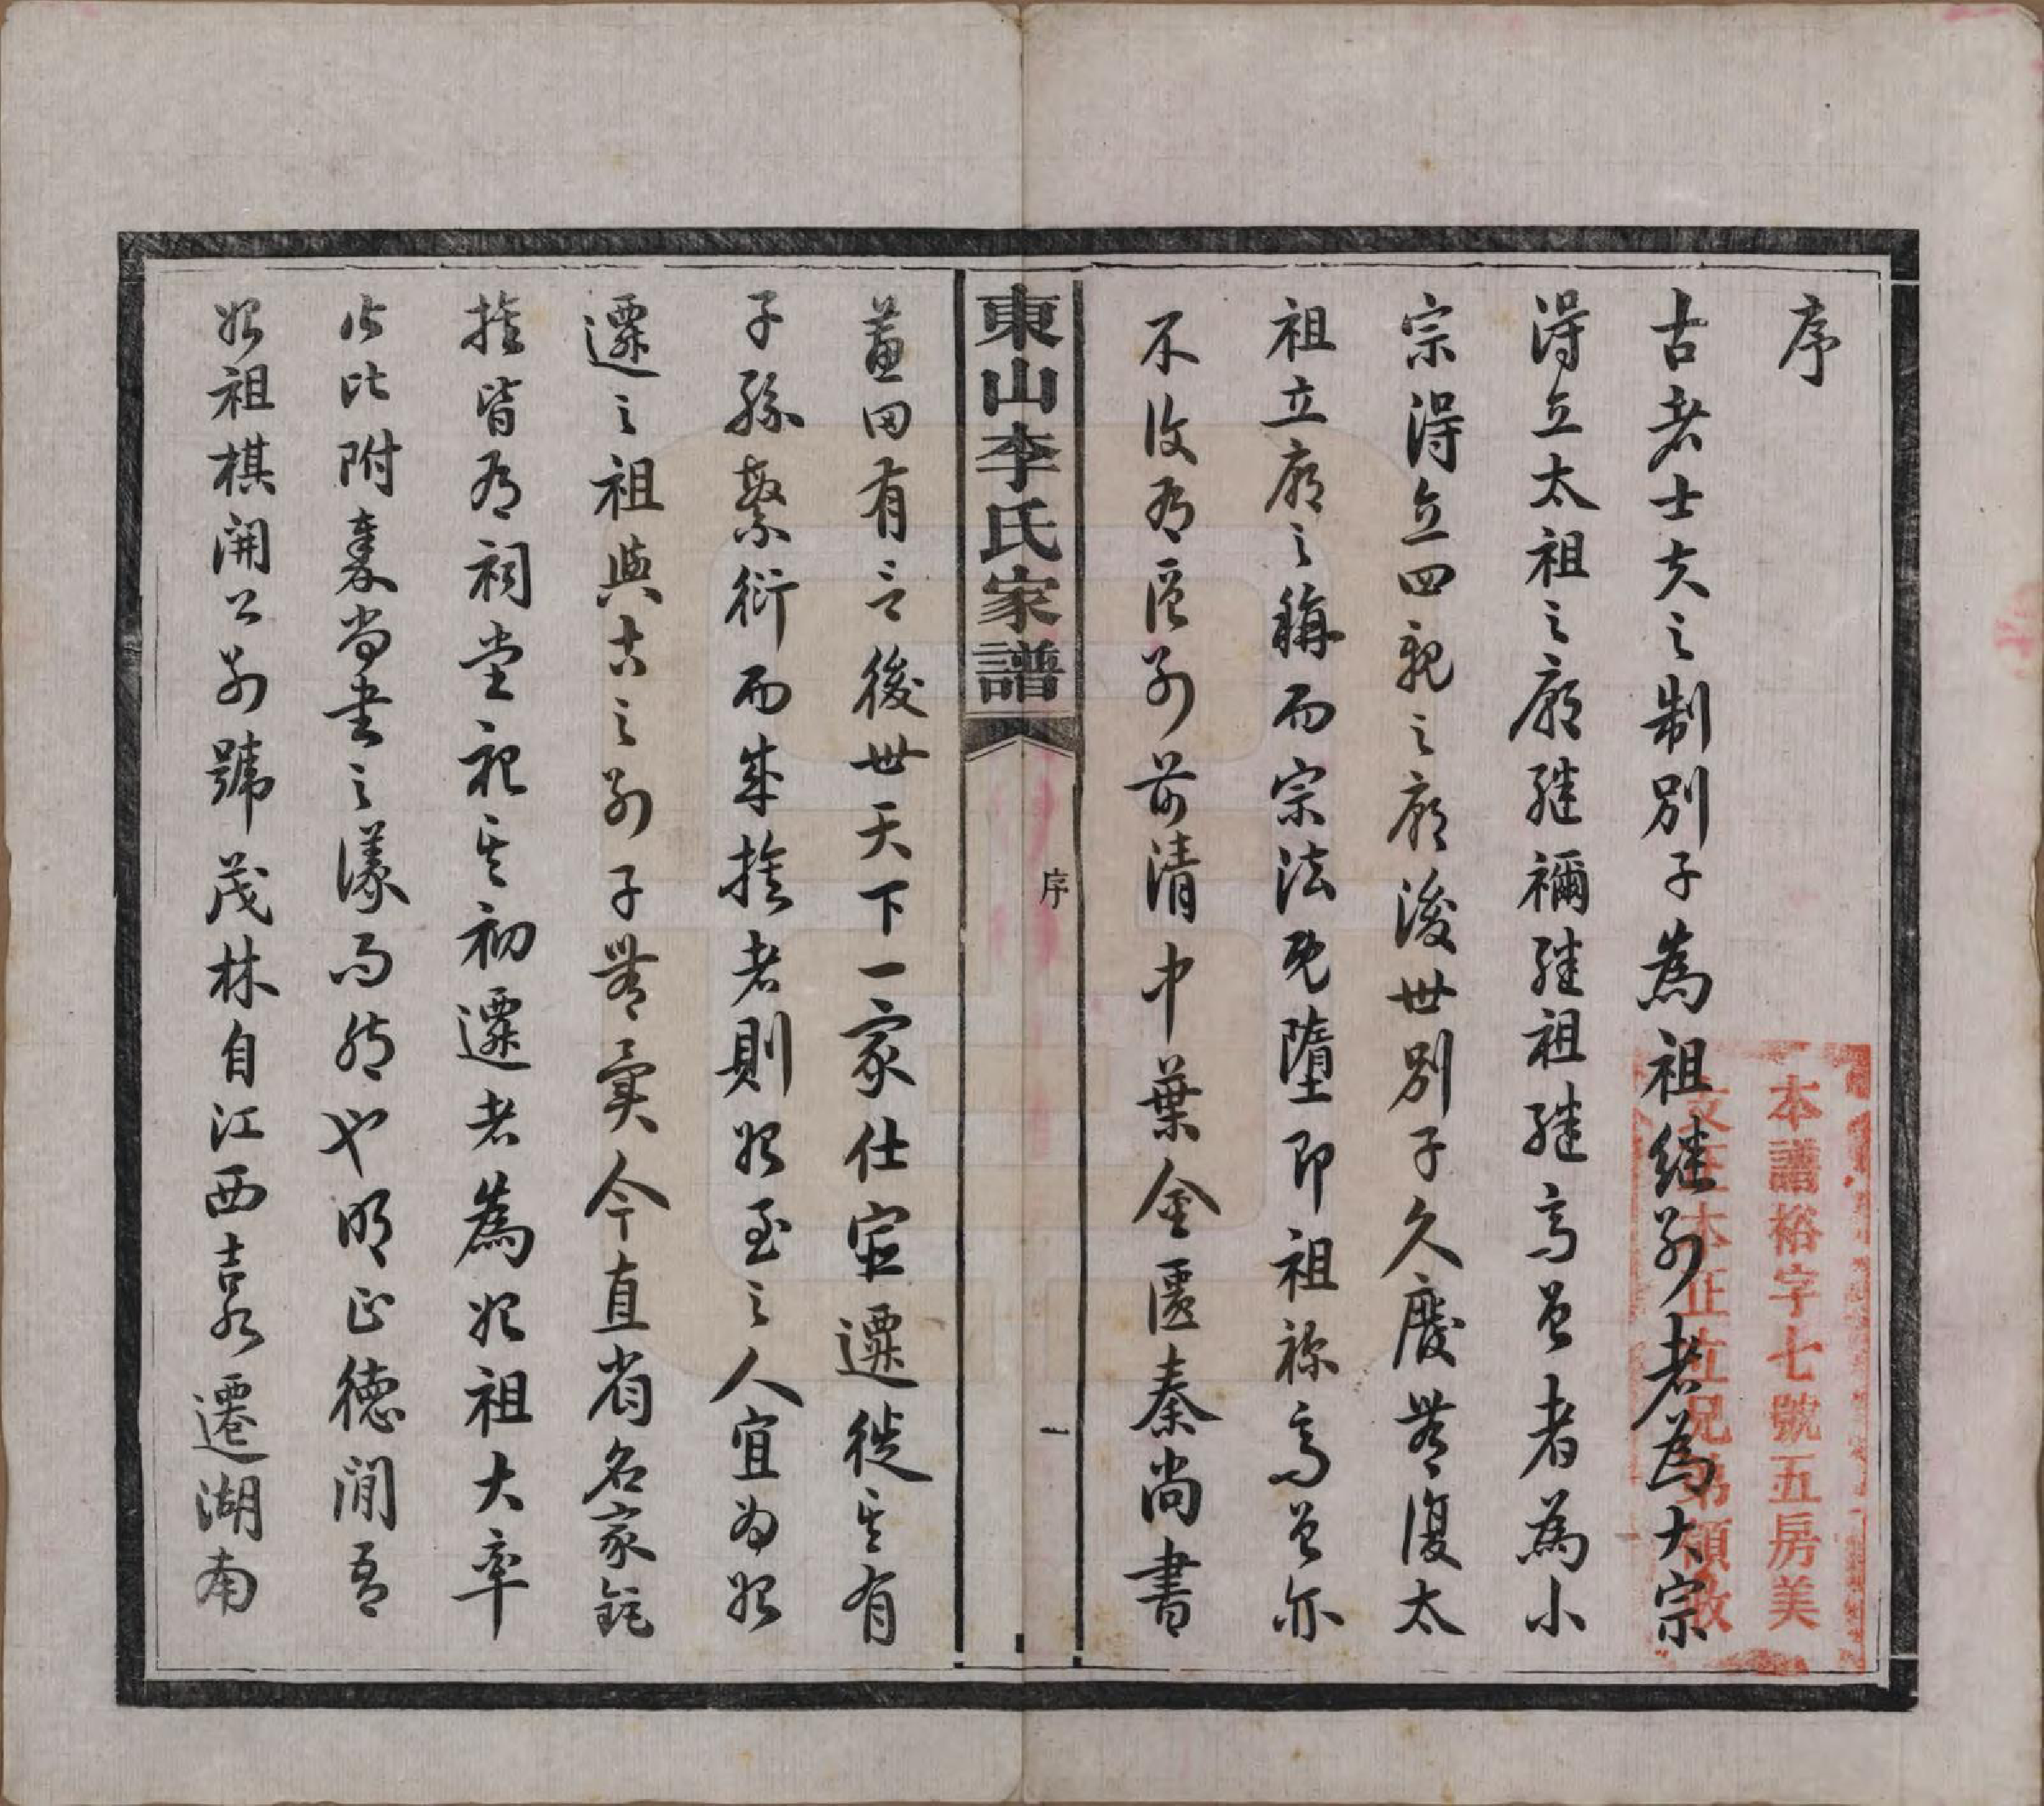 序
古者士大夫之制別子為祖繼別者為大宗
得立太祖之廟繼禰繼祖繼高曾者為小
宗得立四親之廟後世別子久廢無復太
祖立廟之稱而宗法既墮即祖禰高曾亦
不復有區別前清中葉金匱秦尚書
蕙田有言後世天下一家仕宦遷徙其有
子孫繁衍而成族者則始至之人宜為始
遷之祖與古之別子無異今直省名家鉅
族皆有祠堂祀其初遷者為始祖大率
皆比附秦尚書之議而然也明正德間吾
始祖棋開公別號茂林自江西吉水遷湖南
東山李氏家譜
序
一
本譜裕字七號五房美